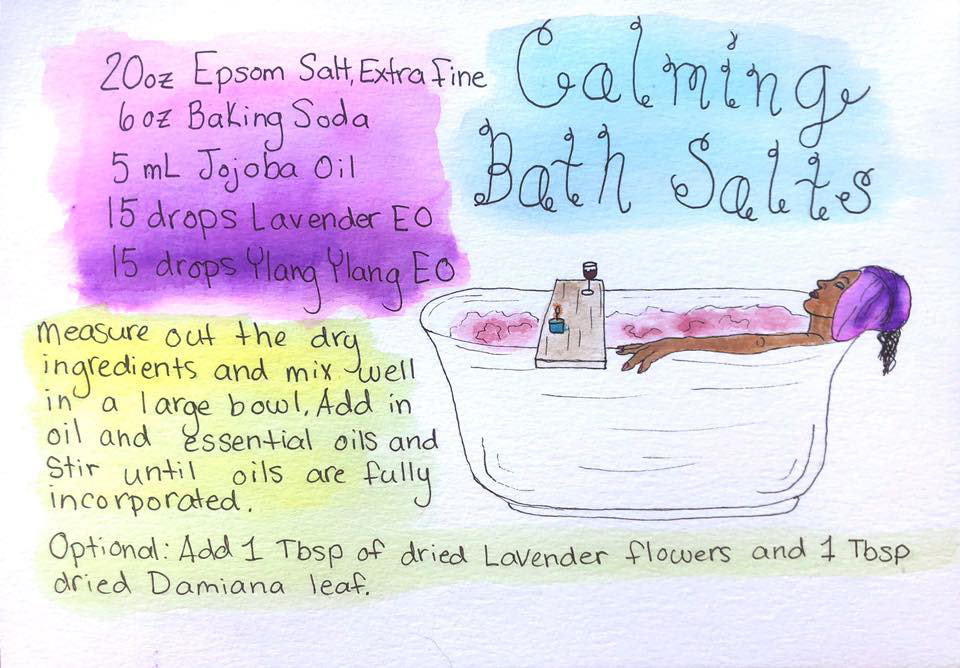 Calming
Bath Salts
20oz Epsom Salt, Extra Fine
6oz Baking Soda
5 mL Jojoba Oil
15 drops Lavender EO
15 drops Ylang Ylang EO
measure out the dry
ingredients and mix well
in a large bowl. Add in
oil and essential oils and
Stir until oils are fully
incorporated.
Optional: Add 1 Tbsp of dried Lavender flowers and 1 Tbsp
dried Damiana leaf.